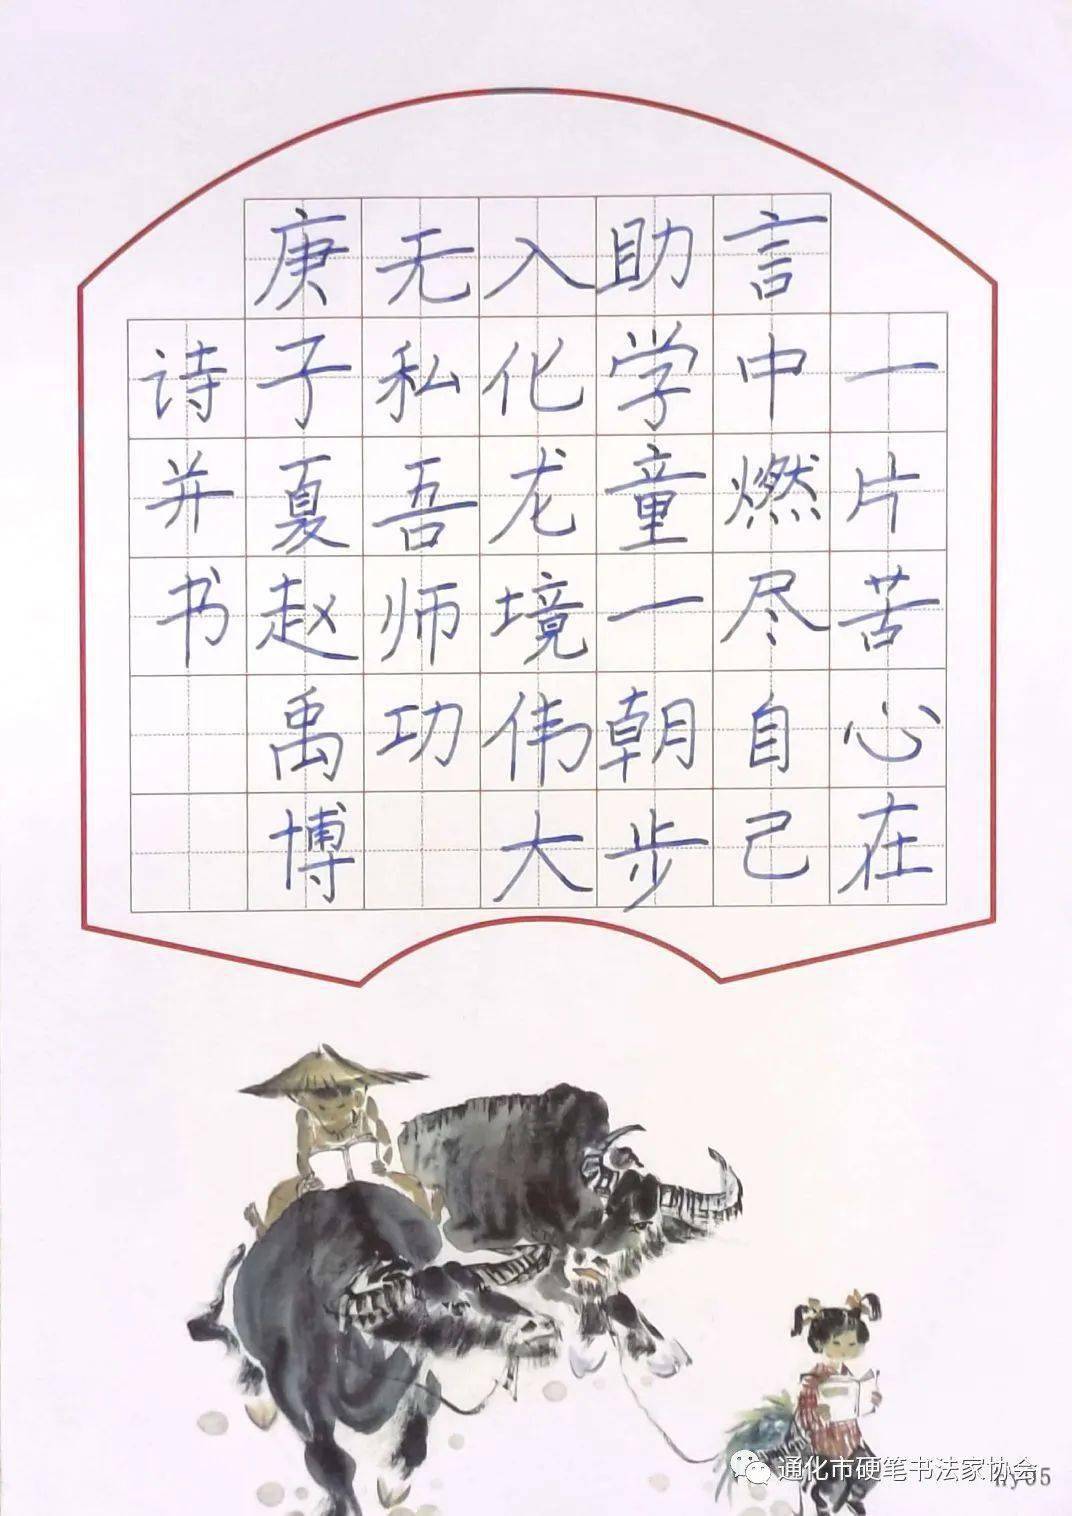 一片苦心在
言中燃尽自己
助学童一朝步
入化龙境伟大
无私吾师功
庚子夏赵禹博
诗并书
通化市硬笔书法家协会